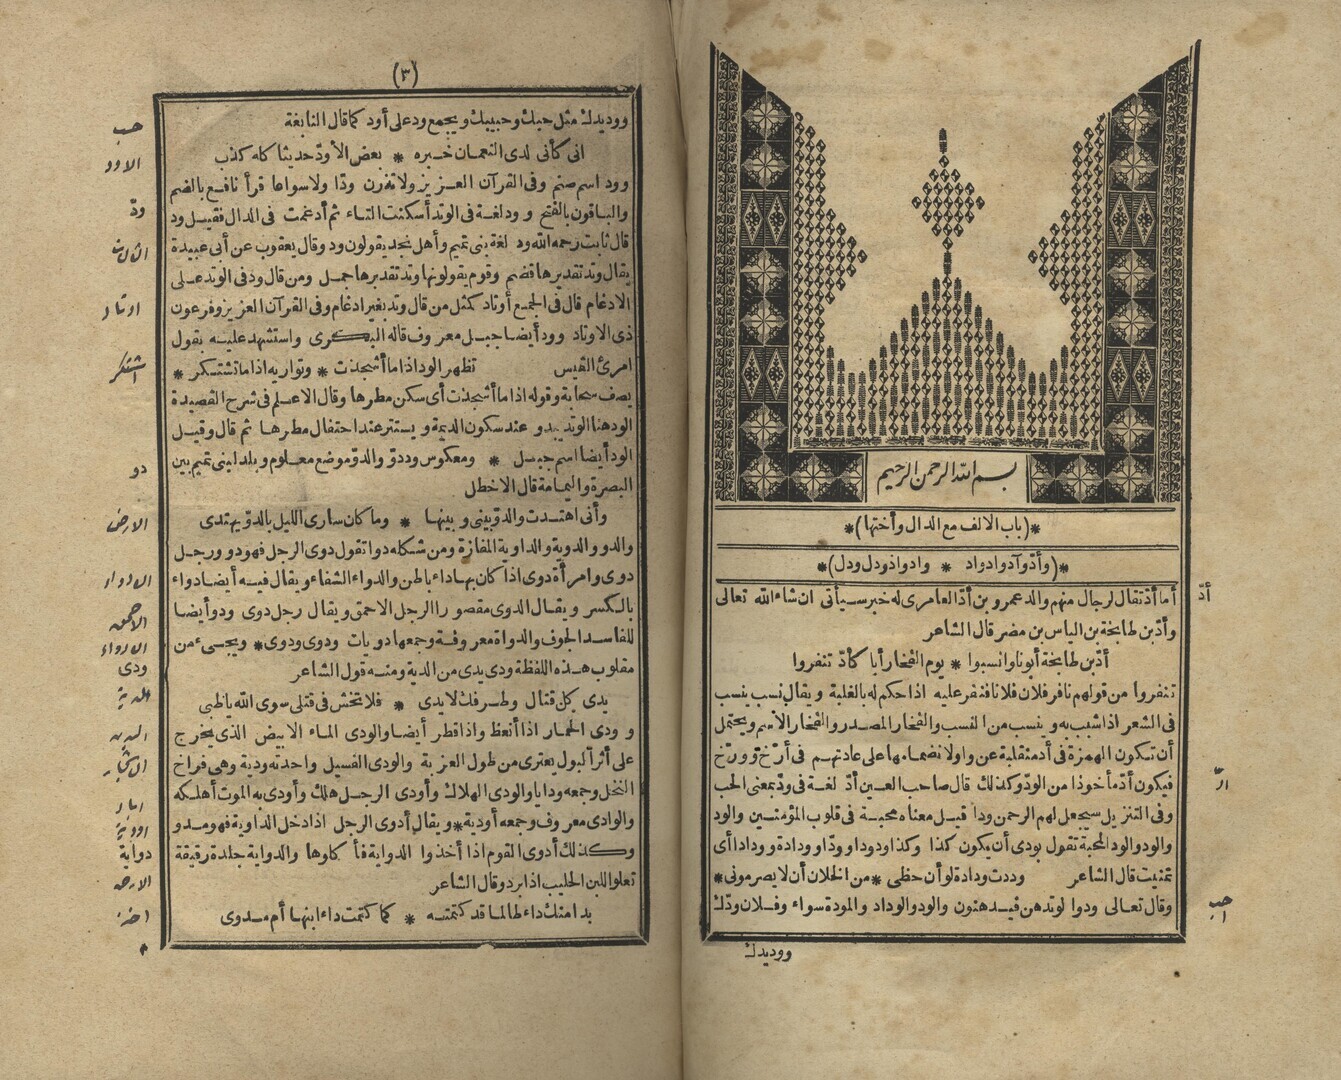 بسم الله الرحمن الرحيم
*(باب الالف مع الدال وأختها)*
*(وأدّ وآد وادواد * وادواذ ودل ودل)*
أدّ
أما أدّ تقال لرجال منهم والد عمرو بن أدّ العامرى له خبر سيأتى ان شاء الله تعالى
وأدّ بن طابخة بن الياس بن مضر قال الشاعر
أدّ بن طابخة أبونا وانسبوا * يوم الفخار أبا كأدّ تنفروا
تنفروا من قولهم نافر فلان فلانا فنفر عليه اذا حكم له بالغلبة ويقال نسب ينسب
فى الشعر اذا شبب به وينسب من النسب والفخار المصدر والفخار الاسم ويحتمل
أن تكون الهمزة فى أد منقلبة عن واو لانضمامها على عادتهم فى أرّخ وورّخ
فيكون أدّ مأخوذا من الود وكذلك قال صاحب العين أدّ لغة فى ودّ بمعنى الحب
وفى التنزيل سيجعل لهم الرحمن ودا قيل معناه محبة فى قلوب المؤمنين والود
والود والود المحبة تقول بودى أن يكون كذا وكذا ودودا وودّا وودادة وودادا أى
تمنيت قال الشاعر وددت ودادة لو أن حظى * من الخلان أن لا يصرمونى *
وقال تعالى ودوا لو تدهن فيدهنون والود والوداد والمودة سواء وفلان ودّك
ووديدك
(٣)
ووديدك مثل حبك وحبيبك ويجمع ود على أود كما قال النابغة
انى كأنى لدى النعمان خبره * بعض الأودّ حديثا كاه كذب
وود اسم صنم وفى القرآن العزيز ولا تذرن ودّا ولا سواعا قرأ نافع بالضم
والباقون بالفتح وود لغة فى الوتد أسكنت التاء ثم أدغمت فى الدال فقيل ود
قال ثابت رحمه الله ود لغة بنى تميم وأهل نجد يقولون ود وقال يعقوب عن أبى عبيدة
يقال وتد تقديرها فضم وقوم يقولونها وتد تقديرها جمل ومن قال ود فى الوتد على
الادغام قال فى الجميع أوتاد كمثل من قال وتد بغير ادغام وفى القرآن العزيز وفرعون
ذى الاوتاد وود أيضا جبل معروف قاله البكرى واستشهد عليه بقول
امرئ القيس تظهر الود اذا ما أشجذت * وتواريه اذا ما تشتكر *
يصف سحابة وقوله اذا ما أشجذت أى سكن مطرها وقال الاعلم فى شرح القصيدة
الود هنا الوتد يبدو عند سكون الديمة ويستتر عند احتفال مطرها ثم قال وقيل
الود أيضا اسم جبل * ومعكوس ود دوّ والدوّ موضع معلوم وبلد لبنى تميم بين
البصرة واليمامة قال الاخطل
وأنى اهتدت والدوّ بينى وبينها * وما كان سارى الليل بالدوّ يهتدى
والدو والدوية والداوية المفازة ومن شكله دوا تقول دوى الرجل فهو دو ورجل
دوى وامرأة دوى اذا كان بها داء باطن والدواء الشفاء ويقال فيه أيضا دواء
بالكسر ويقال الدوى مقصورا الرجل الاحمق ويقال رجل دوى ودو أيضا
للفاسد الجوف والدواة معروفة وجمعها دويات ودوى ودوى * ويجىء من
مقلوب هذه اللفظة ودى يدى من الدية ومنه قول الشاعر
يدى كل قتال وطرفك لا يدى * فلا تخش فى قتلى سوى الله يا ظبى
وودى الحمار اذا أنعظ واذا قطر أيضا والودى الماء الابيض الذى يخرج
على أثر البول يعترى من طول العزبة والودى الفسيل واحدته ودية وهى فراخ
النخل وجمعه ودايا والودى الهلاك وأودى الرجل هلك وأودى به الموت أهلكه
والوادى معروف وجمعه أودية * ويقال أدوى الرجل اذا دخل الداوية فهو مدو
وكذلك أدوى القوم اذا أخذوا الدواية فأكلوها والدواية جلدة رقيقة
تعلو اللبن الحليب اذا برد وقال الشاعر
بدا منك داء طالما قد كتمته * كما كتمت داء ابنها أم مدوى
حب
الاود
ودّ
اوتاد
دو
الارض
ودى
الدية
دواية